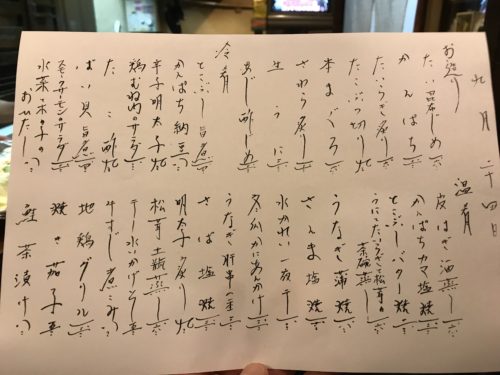 九月二十四日
お造り
たい昆布じめ
かんぱち
たいらぎ炙り
たこぶつ切り
本まぐろ
さわら炙り
生うに
あじ酢じめ
冷肴
とこぶし旨煮
かんぱち納豆
辛子明太子
鶏むね肉のサラダ
たこ酢
ばい貝旨煮
スモークサーモンのサラダ
水菜・木の子の
おひたし
温肴
皮はぎ酒蒸し
かんぱちカマ塩焼
とこぶしバター焼
うにとたいらぎと松茸の
茶碗蒸し
うなぎ蒲焼
さんま塩焼
水かれい一夜干し
冬瓜かにあんかけ
うなぎ肝串一本
さば塩焼
明太子炙り
松茸土瓶蒸し
水いかげそ
牛すじ煮こみ
地鶏グリル
焼き茄子
鮭茶漬け